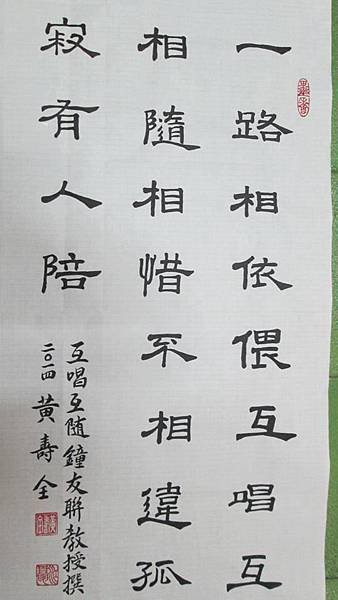 一路相依偎互唱互
相隨相惜不相違孤
寂有人陪
互唱互随鐘友聯教授撰
二〇一四黃壽全